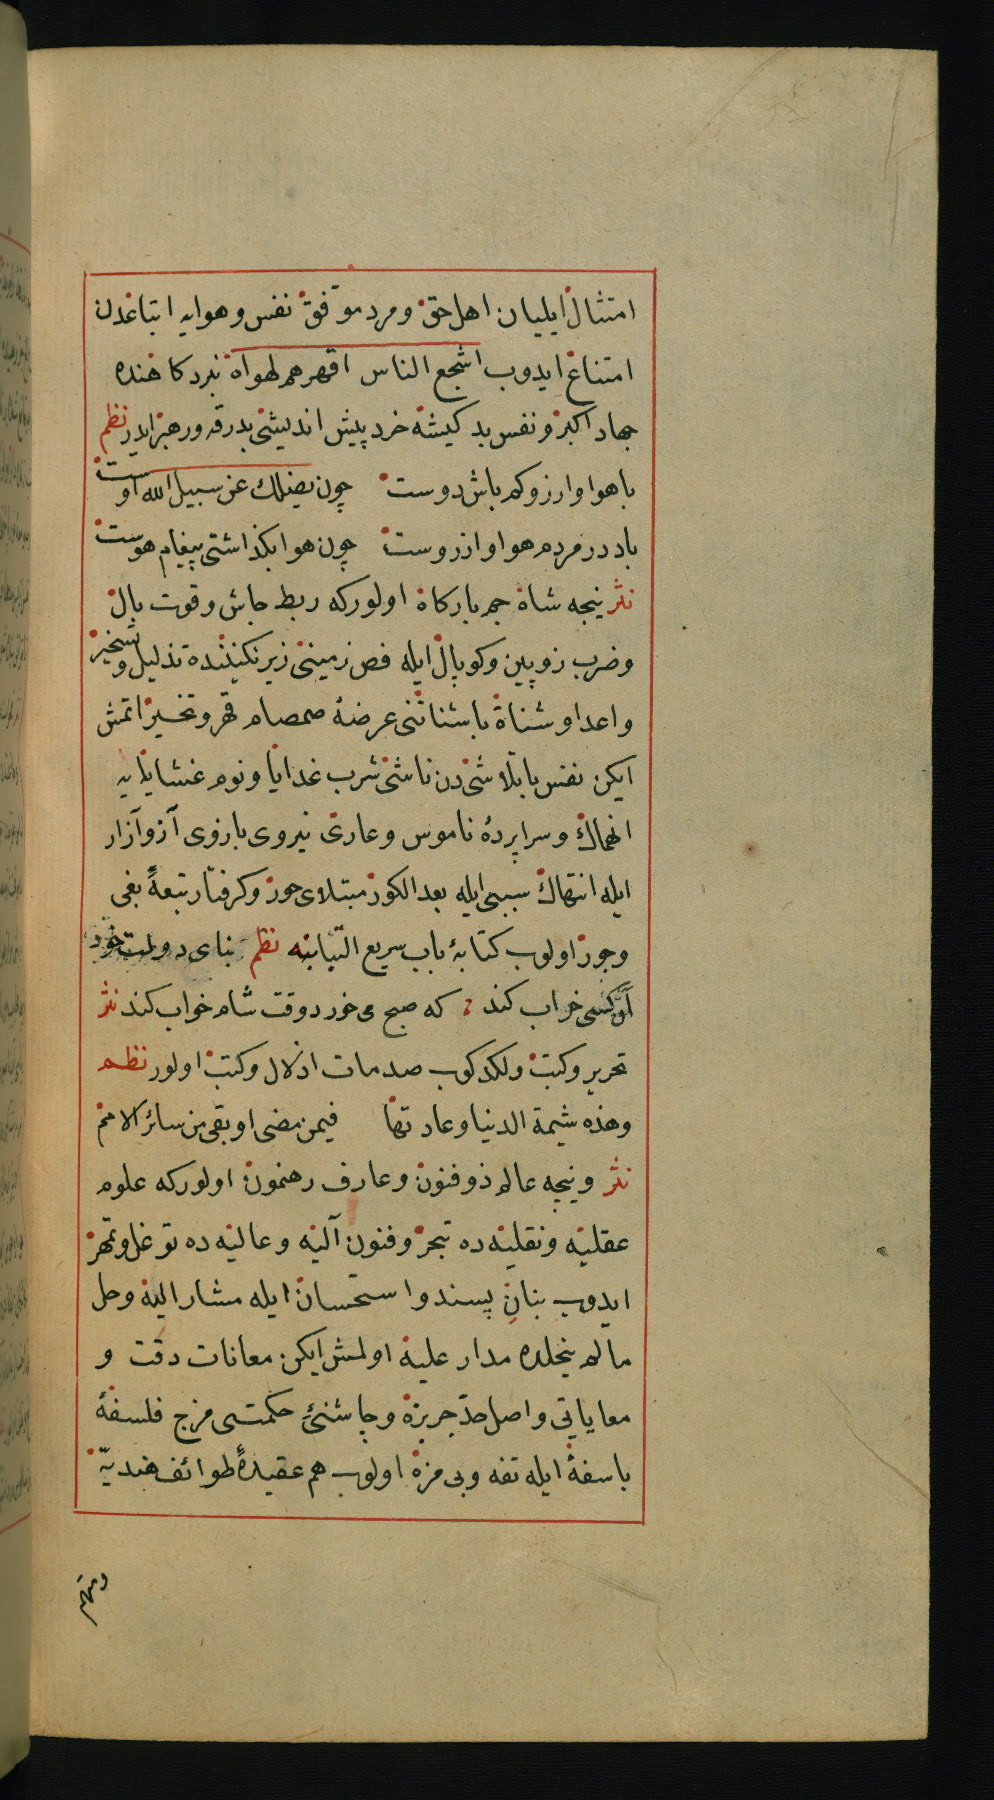 امتثال ايليان اهل حق و مرد موفق نفس و هوايه اتباغدن
امتناع ايدوب اشجع الناس اقهرهم لهواه نبردكاهنده
جهاد اكبر و نفس بد كيشه خرد پيش انديشنى بدرقه و رهبر ايدر نظم
باهوا وارزو كم باش دوست چون يضلك عن سبيل الله اوست
باد در مردم هوا وازروست چون هوا بكذاشتى پيغام هوست
نثر نيجه شاه جم باركاه اولور كه ربط جاش و قوت بال
وضرب زوپين و كوپال ايله فص زمينى زير نكيننده تذليل و تسخير
واعدا و شناة باشناتنى عرضۀ صمصام قهر و تخسير اتمش
ايكن نفس بابلاشى دن ناشى شرب غدايا و نوم عشايايه
انهماك و سراپردۀ ناموس و عارى نيروى بازوى آز و آزار
ايله انتهاك سببى ايله بعد الكور مبتلاى حور و كرفتار تبعۀ بغى
وجور اولوب كتابۀ باب سريع التبابنه نظم بناى دولت خود
آن كسى خراب كند كه صبح مى خورد وقت شام خواب كند نثر
تحرير و كتب ولكدكوب صدمات اذلال و كبت اولور نظم
وهذه شيمة الدنيا وعادتها فيمن مضى او بقى من سائر الامم
نثر ونيجه عالم ذوفنون و عارف رهنمون اولور كه علوم
عقليه و نقليه ده تبحر و فنون آليه و عاليه ده توغل و تمهر
ايدوب بنان پسند و استحسان ايله مشار اليه وحل
مالم ينحلده مدار عليه اولمش ايكن معانات دقت و
معاياتى واصل حد جربزه و چاشنئ حكمتى مزج فلسفۀ
باسفۀ ايله تفه و بى مزه اولوب هم عقيدۀ طوائف هنديه